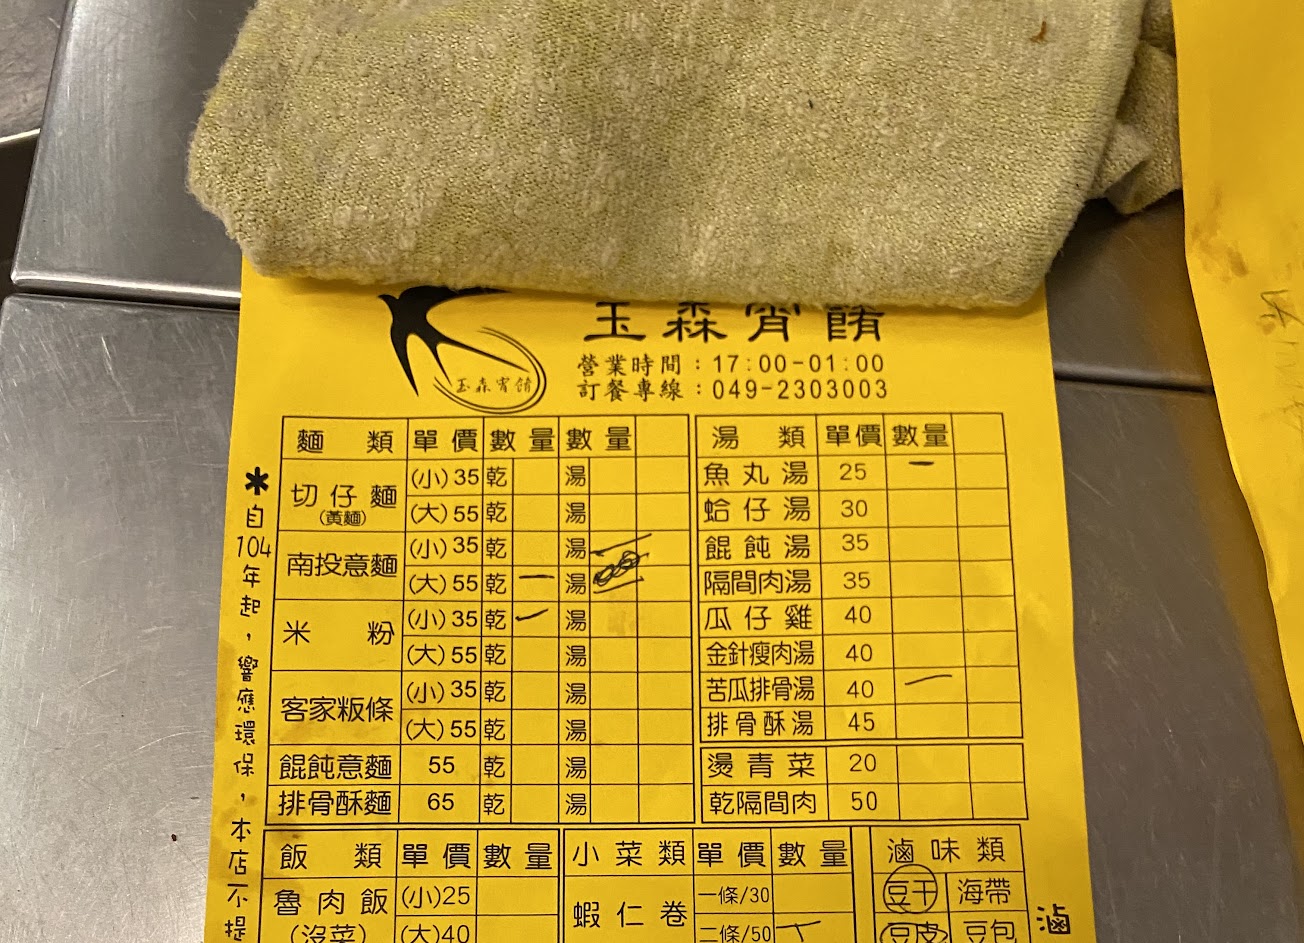 玉森宵餚
玉森宵餚
營業時間：17:00-01:00
訂餐專線：049-2303003
麵類 單價 數量 數量
切仔麵 (小)35 乾 湯
(黃麵) (大)55 乾 湯
南投意麵 (小)35 乾 湯
(大)55 乾 一 湯
米粉 (小)35 乾 一 湯
(大)55 乾 湯
客家粄條 (小)35 乾 湯
(大)55 乾 湯
餛飩意麵 55 乾 湯
排骨酥麵 65 乾 湯
湯類 單價 數量
魚丸湯 25 一
蛤仔湯 30
餛飩湯 35
隔間肉湯 35
瓜仔雞 40
金針瘦肉湯 40
苦瓜排骨湯 40 一
排骨酥湯 45
燙青菜 20
乾隔間肉 50
飯類 單價 數量
魯肉飯 (小)25
(沒菜) (大)40
小菜類 單價 數量
蝦仁卷 一條/30
二條/50
滷味類
豆干 海帶
豆皮 豆包
滷
＊自104年起，響應環保，本店不提